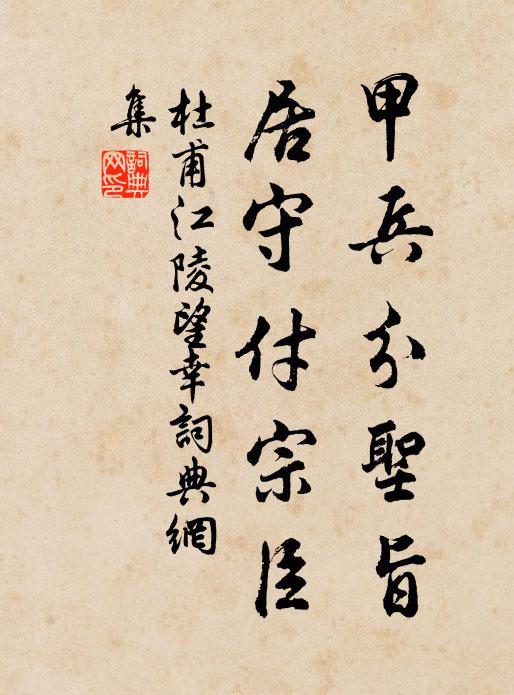 甲兵分聖旨
居守付宗臣
杜甫江陵望幸詞典網
集
詞典網印